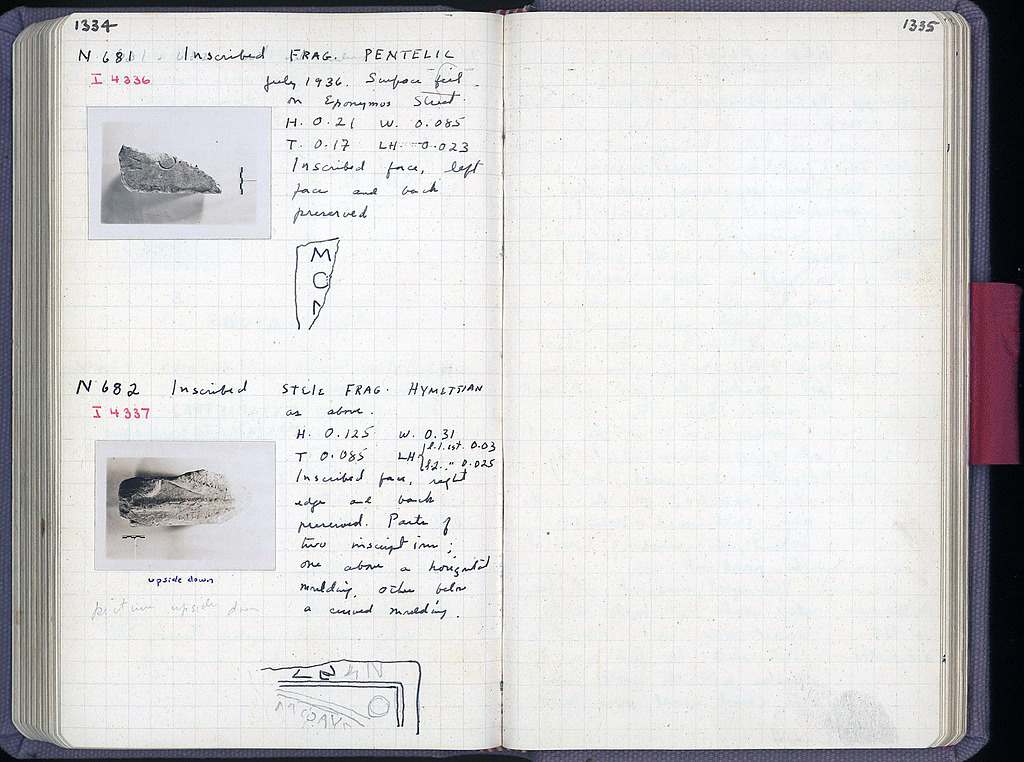 1334
N 681 Inscribed FRAG. PENTELIC
I 4336
July 1936. Surface fill
on Eponymos Street.
H. 0.21 W. 0.085
T. 0.17 LH 0.023
Inscribed face, left
face and back
preserved
M
O
N 682 Inscribed STELE FRAG. HYMETTIAN
I 4337
as above.
H. 0.125 W. 0.31
T 0.085 LH l.1. est. 0.03
l.2. " 0.025
Inscribed face, right
edge and back
preserved. Parts of
two inscriptions;
one above a horizontal
moulding, other below
a curved moulding.
upside down
picture upside down
1335